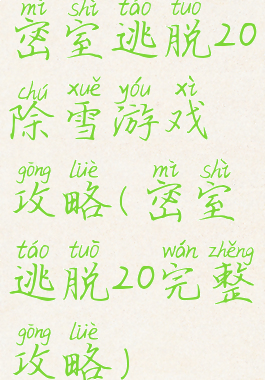 mì shì táo tuo
密室逃脱20
chú xuě yóu xì
除雪游戏
gōng lüè mì shì
攻略(密室
táo tuō wán zhěng
逃脱20完整
gōng lüè
攻略)